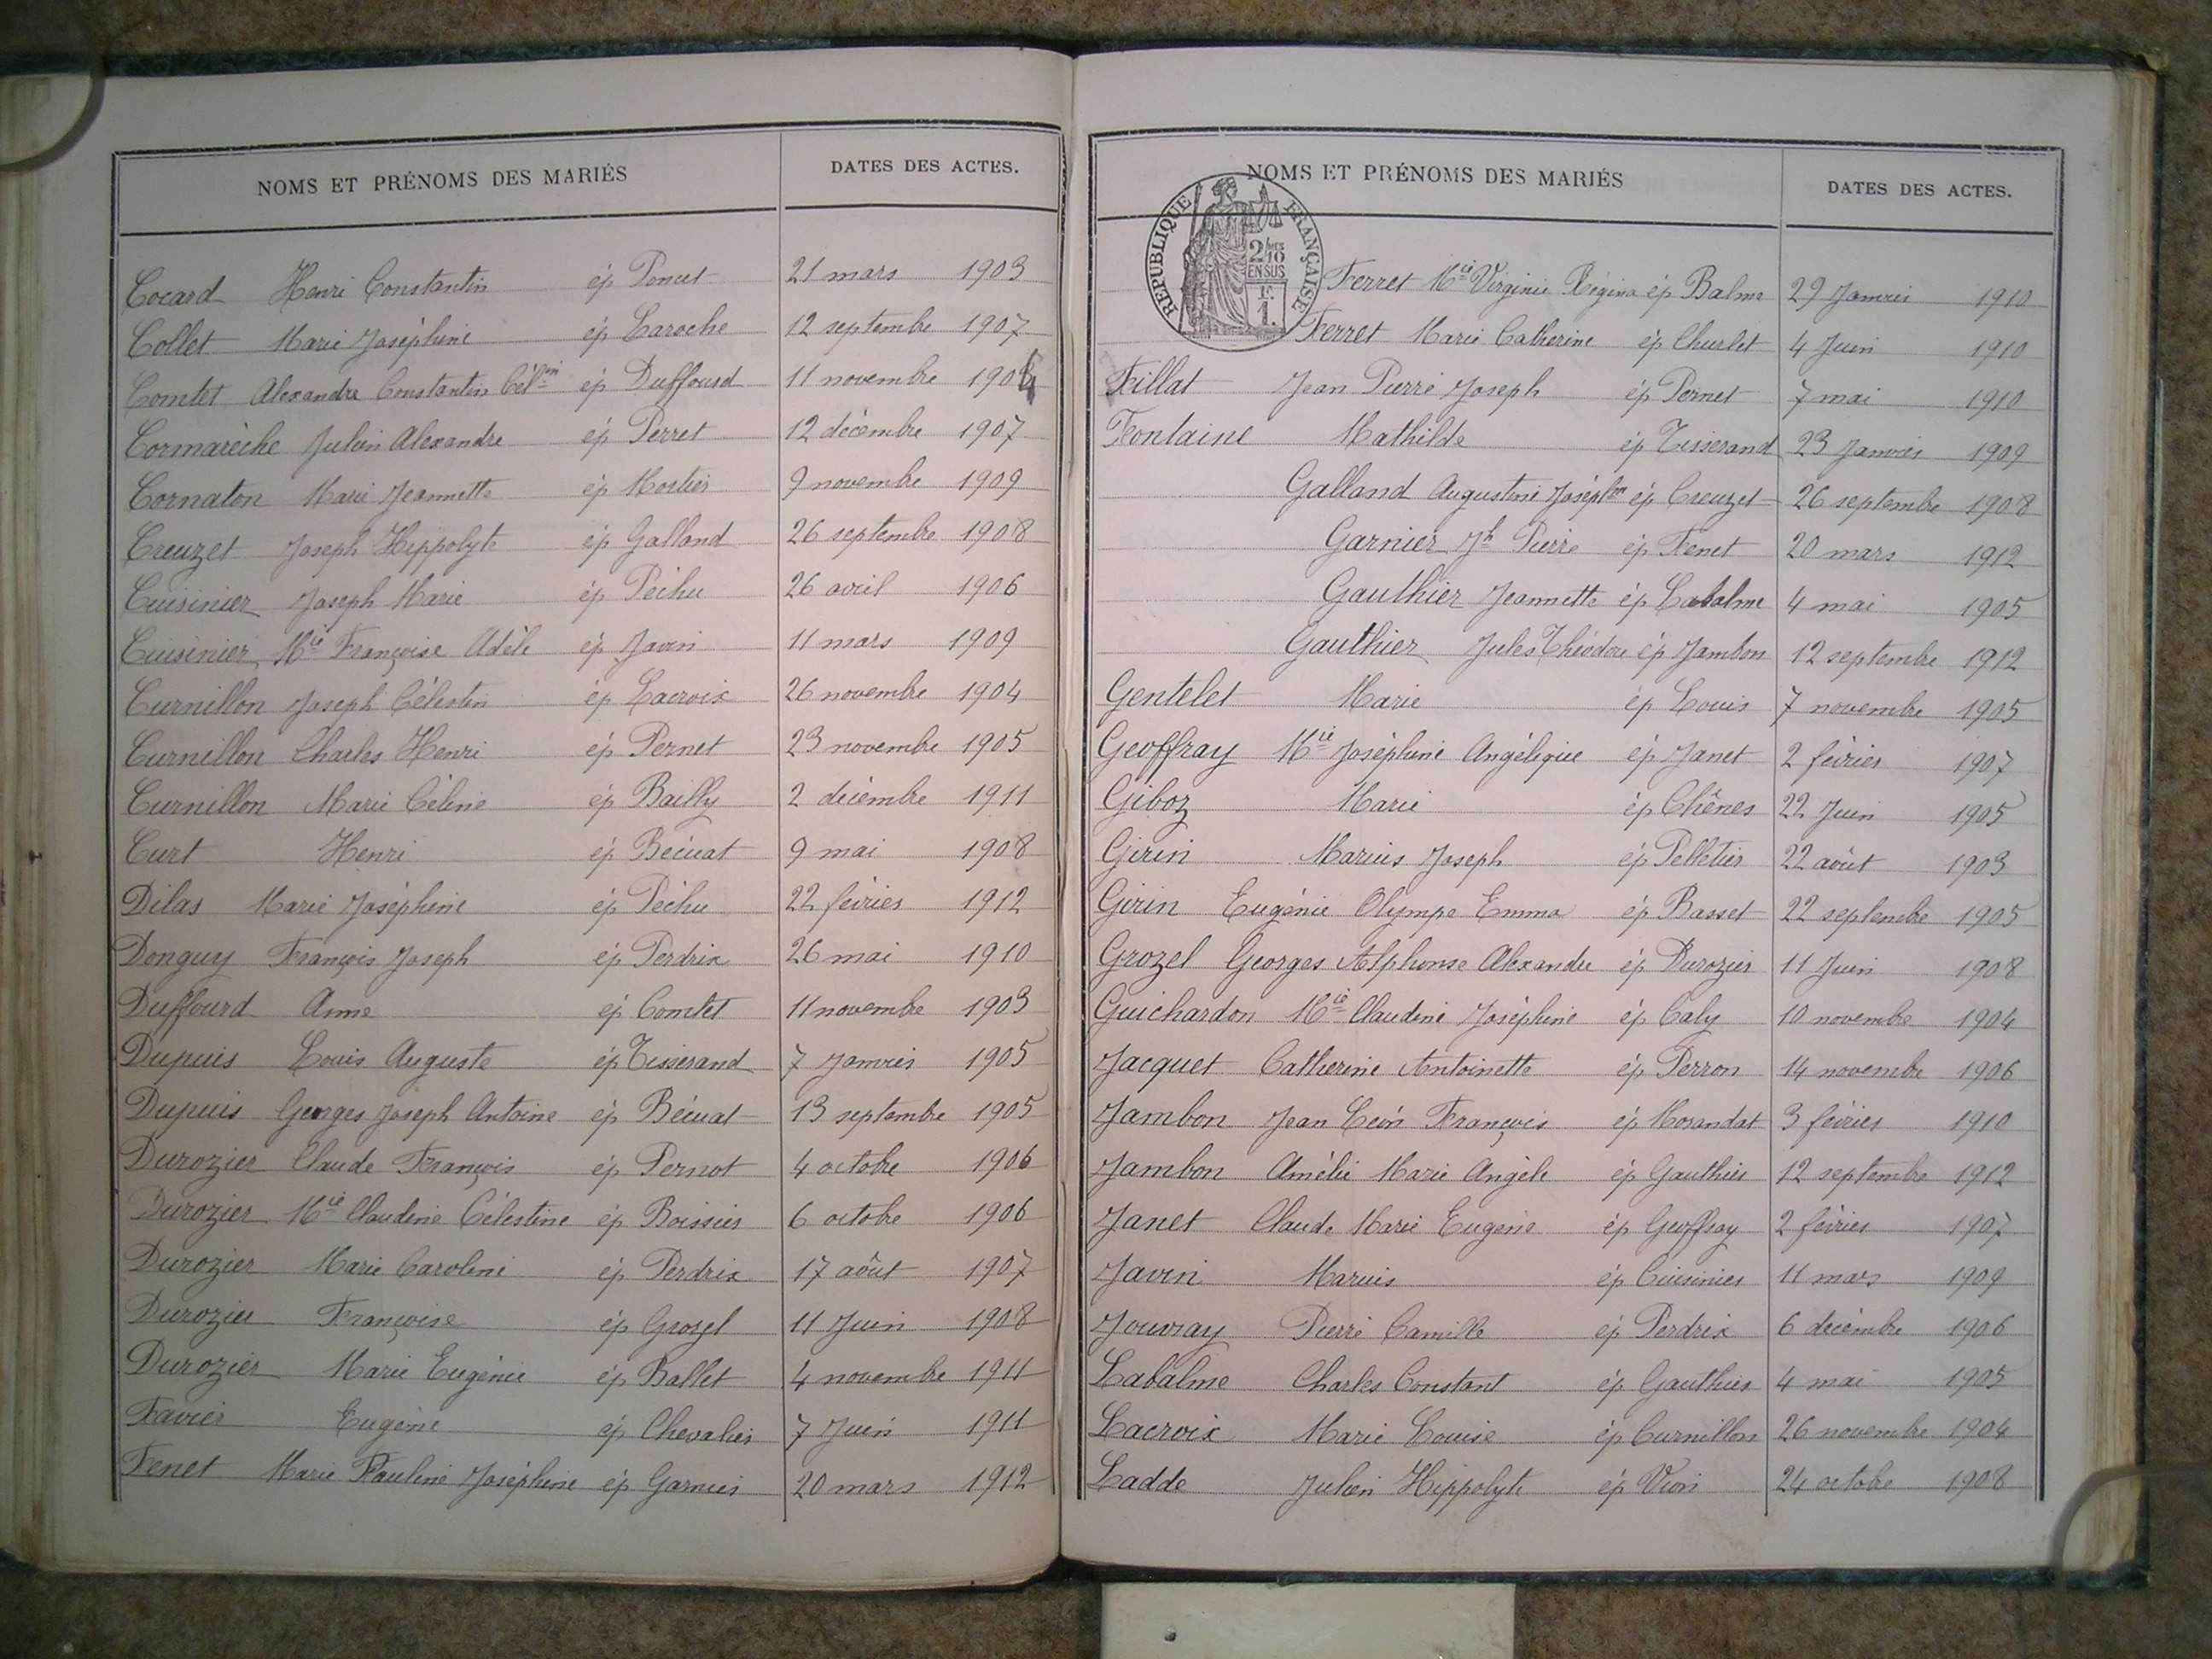 NOMS ET PRÉNOMS DES MARIÉS DATES DES ACTES.
Cocard Henri Constantin ép Poncet 21 mars 1903
Collet Marie Joséphine ép Laroche 12 septembre 1907
Comtet Alexandre Constantin Cél.in ép Duffourd 11 novembre 1904
Cormarèche Julien Alexandre ép Perret 12 décembre 1907
Cornaton Marie Jeannette ép Mortier 9 novembre 1909
Creuzet Joseph Hippolyte ép Galland 26 septembre 1908
Cuisinier Joseph Marie ép Péchu 26 avril 1906
Cuisinier Mie Françoise Adèle ép Javin 11 mars 1909
Curnillon Joseph Célestin ép Lacroix 26 novembre 1904
Curnillon Charles Henri ép Pernet 23 novembre 1905
Curnillon Marie Céline ép Bailly 2 décembre 1911
Curt Henri ép Bécuat 9 mai 1908
Dilas Marie Joséphine ép Péchu 22 février 1912
Donguy François Joseph ép Perdrix 26 mai 1910
Duffourd Anne ép Comtet 11 novembre 1903
Dupuis Louis Auguste ép Tisserand 7 Janvier 1905
Dupuis Georges Joseph Antoine ép Bécuat 13 septembre 1905
Durozier Claude François ép Pernot 4 octobre 1906
Durozier Mie Claudine Célestine ép Boissier 6 octobre 1906
Durozier Marie Caroline ép Perdrix 17 août 1907
Durozier Françoise ép Grozel 11 Juin 1908
Durozier Marie Eugénie ép Ballet 4 novembre 1911
Favier Eugène ép Chevalier 7 Juin 1911
Fenet Marie Pauline Joséphine ép Garnier 20 mars 1912
NOMS ET PRÉNOMS DES MARIÉS DATES DES ACTES.
RÉPUBLIQUE FRANÇAISE
2/10
EN SUS
F.
1.
Ferret Mie Virginie Régina ép Balme 29 Janvier 1910
Ferret Marie Catherine ép Churlet 4 Juin 1910
Fillat Jean Pierre Joseph ép Pernet 7 mai 1910
Fontaine Mathilde ép Tisserand 23 Janvier 1909
Galland Augustine Joséphne ép Creuzet 26 septembre 1908
Garnier Jh Pierre ép Fenet 20 mars 1912
Gauthier Jeannette ép Labalme 4 mai 1905
Gauthier Jules Théodore ép Jambon 12 septembre 1912
Gentelet Marie ép Louis 7 novembre 1905
Geoffray Mie Joséphine Angélique ép Janet 2 février 1907
Giboz Marie ép Chênes 22 Juin 1905
Girin Marius Joseph ép Pelletier 22 août 1903
Girin Eugénie Olympe Emma ép Basset 22 septembre 1905
Grozel Georges Alphonse Alexandre ép Durozier 11 Juin 1908
Guichardon Mie Claudine Joséphine ép Caly 10 novembre 1904
Jacquet Catherine Antoinette ép Perron 14 novembre 1906
Jambon Jean Léon François ép Morandat 3 février 1910
Jambon Amélie Marie Angèle ép Gauthier 12 septembre 1912
Janet Claude Marie Eugène ép Geoffray 2 février 1907
Javin Marius ép Cuisinier 11 mars 1909
Jouvray Pierre Camille ép Perdrix 6 décembre 1906
Labalme Charles Constant ép Gauthier 4 mai 1905
Lacroix Marie Louise ép Curnillon 26 novembre 1904
Ladde Julien Hippolyte ép Vion 24 octobre 1908